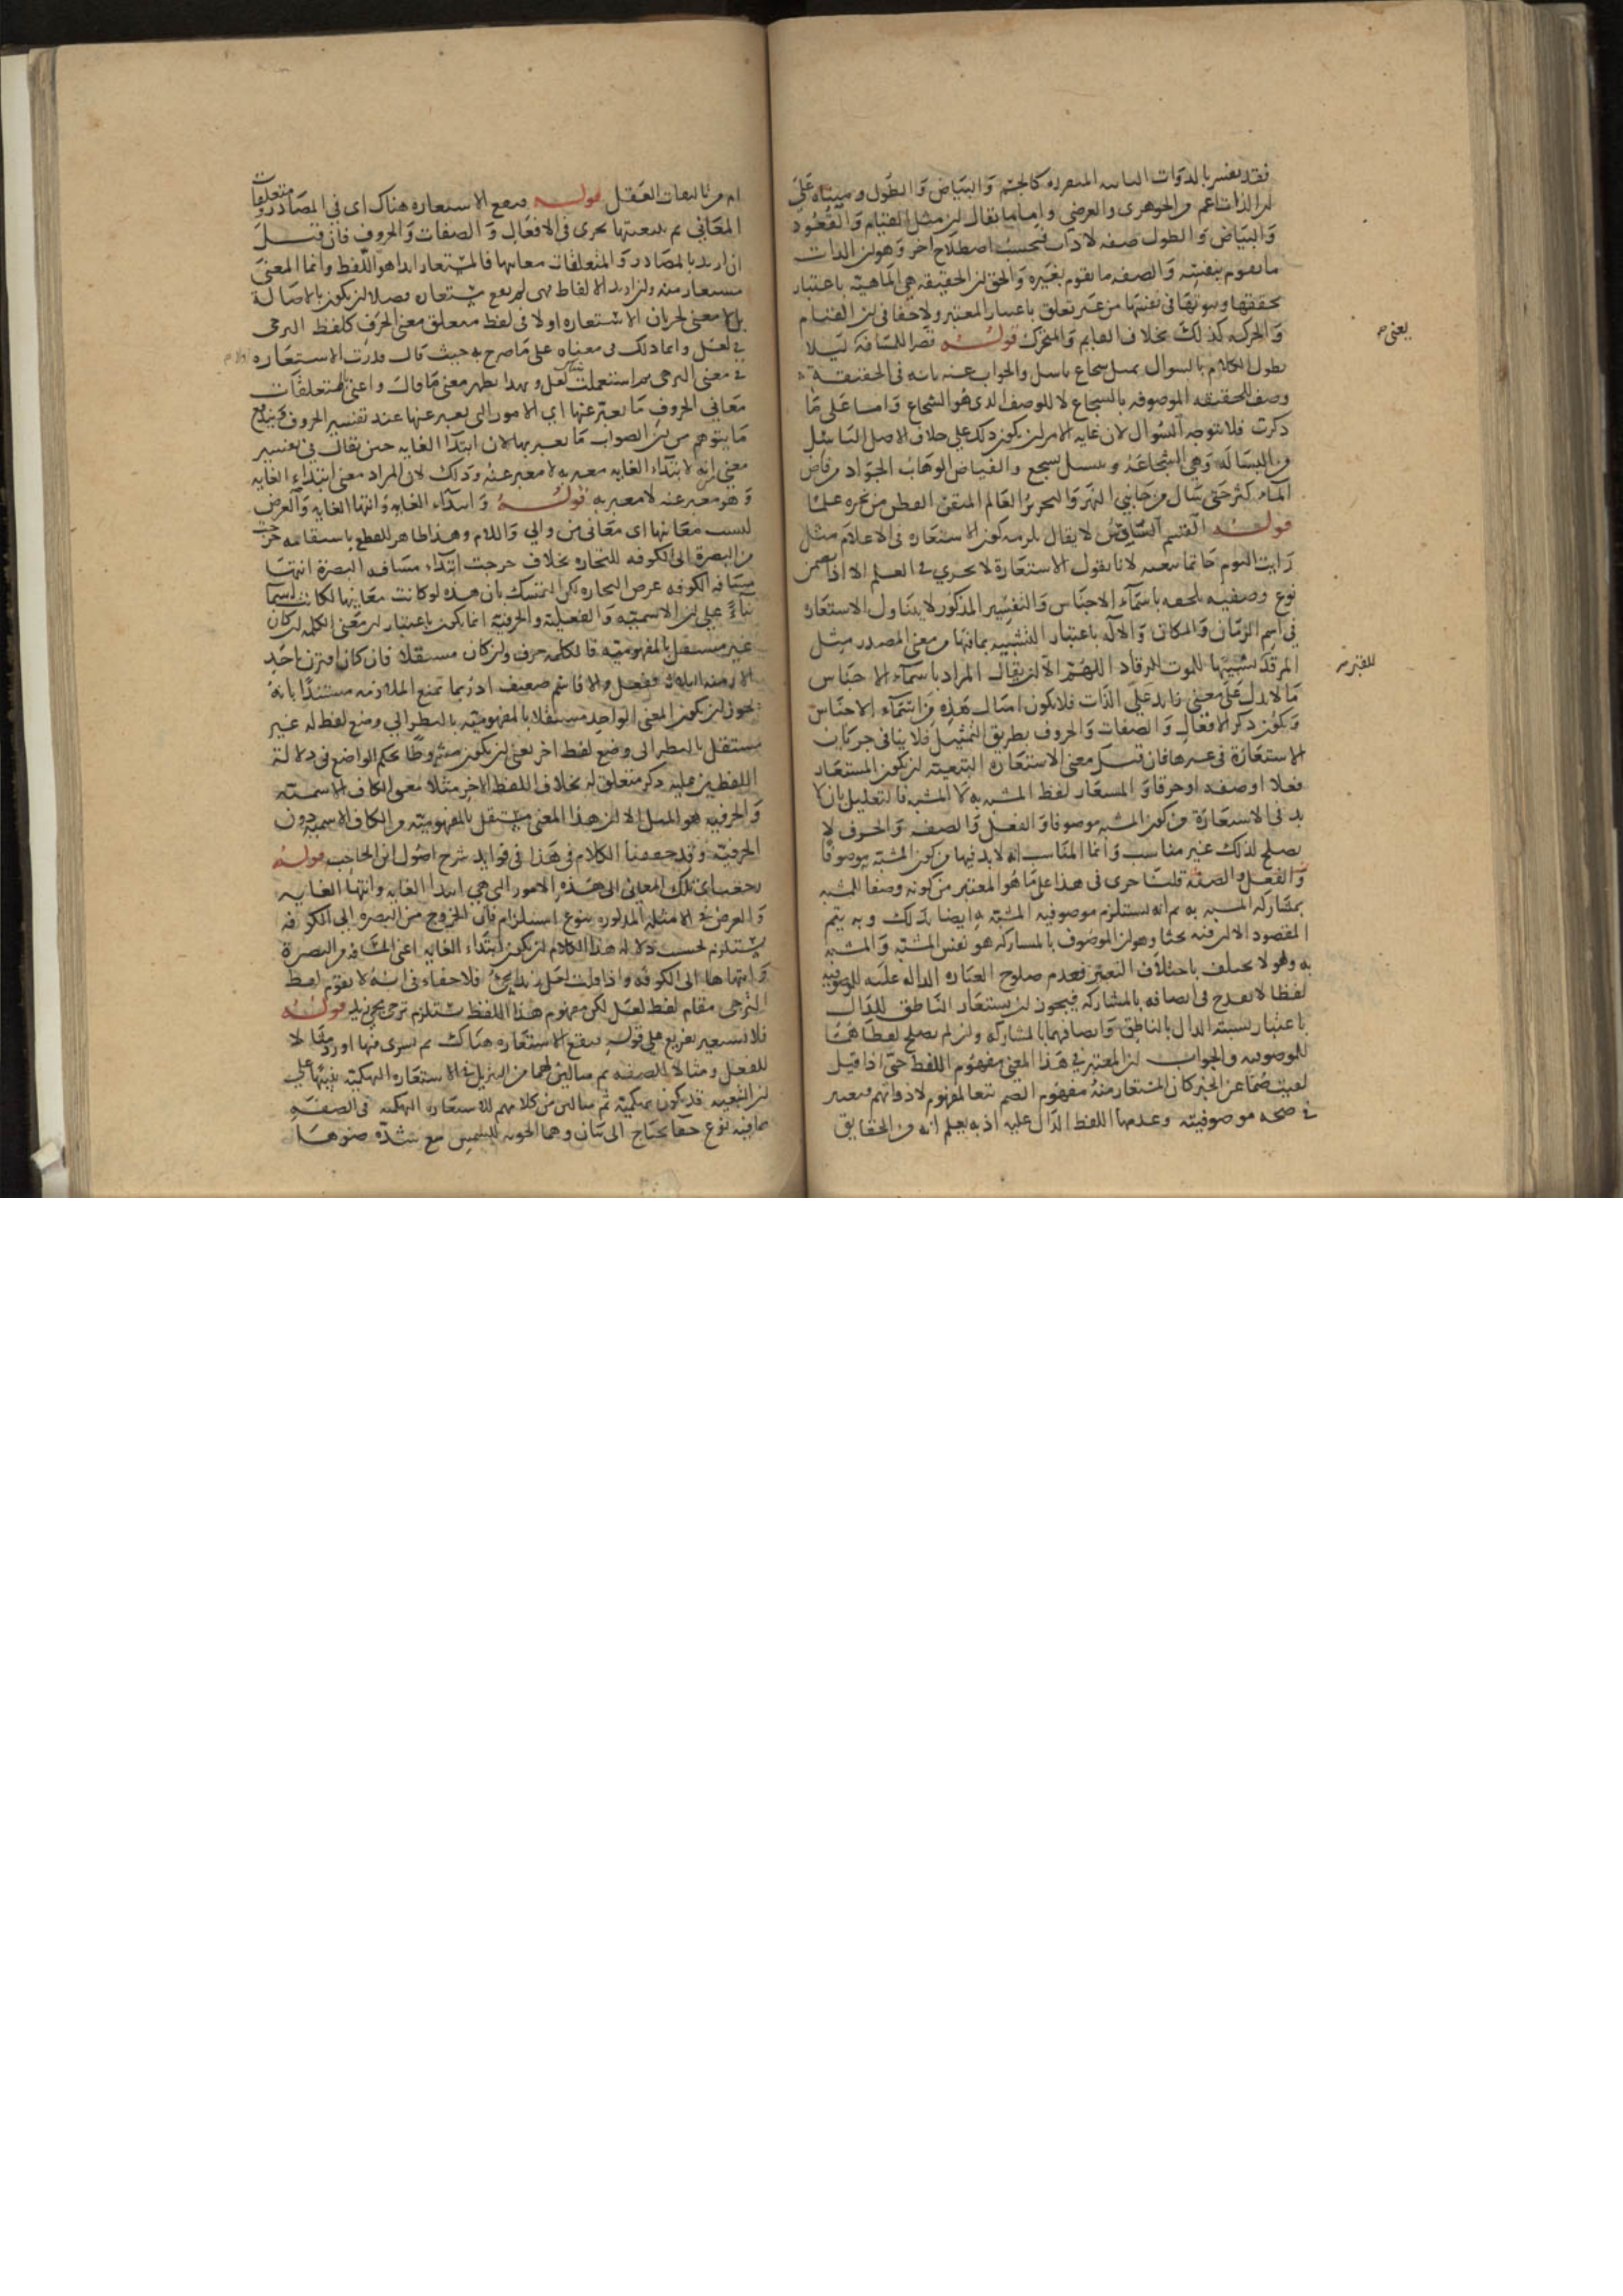 فقد يفسر بالذوات الثابتة المتقررة كالجسم والبياض والطول ومبناه على
ان الذات اعم من الجوهري والعرضي واما ما يقال ان مثل القيام والقعود
والبياض والطول صفة لا ذات فبحسب اصطلاح اخر وهو ان الذات
ما يقوم بنفسه والصفة ما يقوم بغيره والحق ان الحقيقة هي الماهية باعتبار
تحققها وثبوتها في نفسها من غير تعلق باعتبار المعتبر ولا خفا في ان القيام
والحركة كذلك بخلاف القايم والمتحرك قوله قصرا للمسافة ليلا
يطول الكلام بالسوال بمثل شجاع باسل والجواب عنه بانه في الحقيقة
وصف للحقيقة الموصوفة بالشجاع لا للوصف الذي هو الشجاع واما على ما
ذكرت فلا يتوجه السوال لان غاية الامر ان يكون ذلك على خلاف الاصل الباسل
من البسالة وهي الشجاعة والفياض الوهاب الجواد من فاض
الماء كثر حتى سال من جانبي النهر والنحرير العالم المتقن الفطن من نحره علما
قوله القسم السادس لا يقال يلزمه كون الاستعارة في الاعلام مثل
رايت اليوم حاتما تبعية لانا نقول الاستعارة لا تجري في العلم الا اذا تضمن
نوع وصفية تلحقه باسماء الاجناس والتفسير المذكور لا يتناول الاستعارة
في اسم الزمان والمكان والالة باعتبار التشبيه بما فيها من معنى المصدر مثل
المرقد تشبيها للموت بالرقاد اللهم الا ان يقال المراد باسماء الاجناس
ما لا يدل على معنى زايد على الذات فلا يكون امثال هذه من اسماء الاجناس
ويكون ذكر الافعال والصفات والحروف بطريق التمثيل فلا ينافي جريان
الاستعارة في غيرها فان قيل معنى الاستعارة التبعية ان يكون المستعار
فعلا او صفة او حرفا والمستعار لفظ المشبه به لا المشبه فالتعليل بان لا
بد في الاستعارة من كون المشبه موصوفا والفعل والصفة والحرف لا
يصلح لذلك غير مناسب وانما المناسب انه لا بد فيها من كون المشبه به موصوفا
والفعل والصفة قلنا جرى في هذا على ما هو المعتبر من كونه وصفا للمشبه
بمشاركة المشبه به ثم انه يستلزم موصوفية المشبه به ايضا بذلك وبه يتم
المقصود الا ان فيه بحثا وهو ان الموصوف بالمشاركة هو نفس المشبه والمشبه
به وهو لا يختلف باختلاف التعبير فعدم صلوح العبارة الدالة عليه للموصوفية
لفظا لا يقدح في اتصافه بالمشاركة فيجوز ان يستعار الناطق للدال
باعتبار تشبيه الدال بالناطق واتصافهما بالمشاركة وان لم يصلح لفظاهما
للموصوفية والجواب ان المعتبر في هذا المعنى مفهوم اللفظ حتى اذا قيل
لقيت صما عن الخير كان المستعار منه مفهوم الصم تبعا لمفهوم لا ذواتهم فيعتبر
في صحة موصوفيته وعدمها اللفظ الدال عليه اذ به يعلم انه من الحقايق
يعني
للقبر
ام من تابعات العقل قوله فتقع الاستعارة هناك اي في المصادر ومتعلقات
المعاني ثم بتبعيتها تجري في الافعال والصفات والحروف فان قيل
ان اريد بالمصادر والمتعلقات معانيها فالمستعار ابدا هو اللفظ وانما المعنى
مستعار منه وان اريد الالفاظ فهي لم تقع مستعارة فضلا ان يكون بالاصالة
بل لا معنى لجريان الاستعارة اولا في لفظ متعلق معنى الحرف كلفظ الترجي
في لعل وانما ذلك في معناه على ما صرح به حيث قال قدرت الاستعارة
في معنى الترجي ثم استعملت لعل وبهذا يظهر معنى ما قال واعني بمتعلقات
معاني الحروف ما يعبر عنها اي الامور التي يعبر عنها عند تفسير الحروف فيندفع
ما يتوهم من ان الصواب ما يعبر بها لان ابتداء الغاية حين يقال في تفسير
معنى من انه لابتداء الغاية معبر به لا معبر عنه وذلك لان المراد معنى ابتداء الغاية
وهو معبر عنه لا معبر به قوله وابتداء الغاية وانتهاء الغاية والغرض
ليست معانيها اي معاني من والى واللام وهذا ظاهر للقطع باستقامة خرجت
من البصرة الى الكوفة للتجارة بخلاف خرجت ابتداء مسافة البصرة انتهاء
مسافة الكوفة غرض التجارة لكن التمسك بان هذه لو كانت معانيها لكانت اسما
بناء على ان الاسمية والفعلية والحرفية انما يكون باعتبار ان معنى الكلمة ان كان
غير مستقل بالمفهومية فالكلمة حرف وان كان مستقلا فان كان اقترن باحد
الازمنة الثلاثة ففعل والا فاسم ضعيف اذ ربما تمنع الملازمة مستندا بانه
يجوز ان يكون المعنى الواحد مستقلا بالمفهومية بالنظر الى وضع لفظ له غير
مستقل بالنظر الى وضع لفظ اخر بمعنى ان يكون مشروطا بحكم الواضع في دلالة
اللفظ عليه ذكر متعلق له بخلاف اللفظ الاخر مثلا معنى الكاف الاسمية
والحرفية هو المثل الا ان هذا المعنى مستقل بالمفهومية من الكاف الاسمية دون
الحرفية وقد حققنا الكلام في هذا في فوايد شرح اصول ابن الحاجب قوله
رجعت اي تلك المعاني الى هذه الامور التي هي ابتداء الغاية وانتهاء الغاية
والغرض في الامثلة المذكورة بنوع استلزام فان الخروج من البصرة الى الكوفة
يستلزم بحسب دلالة هذا الكلام ان يكون ابتداء الغاية اعني المسافة من البصرة
وانتهاها الى الكوفة واذا قلت لعل زيدا يجئ فلا خفاء في انه لا يقوم لفظ
الترجي مقام لفظ لعل لكن مفهوم هذا اللفظ يستلزم ترجي مجئ زيد قوله
فلا تستعير تفريع على قوله فتقع الاستعارة هناك ثم تسري فيها اورد مثالا
للفعل ومثالا للصفة ثم مثالين لهما من التنزيل في الاستعارة التهكمية تنبيها على
ان التبعية قد يكون تهكمية ثم مثالين من كلامهم للاستعارة التهكمية في الصفة
مما فيه نوع خفا يحتاج الى بيان وهما الجونة للشمس مع شدة ضوئها